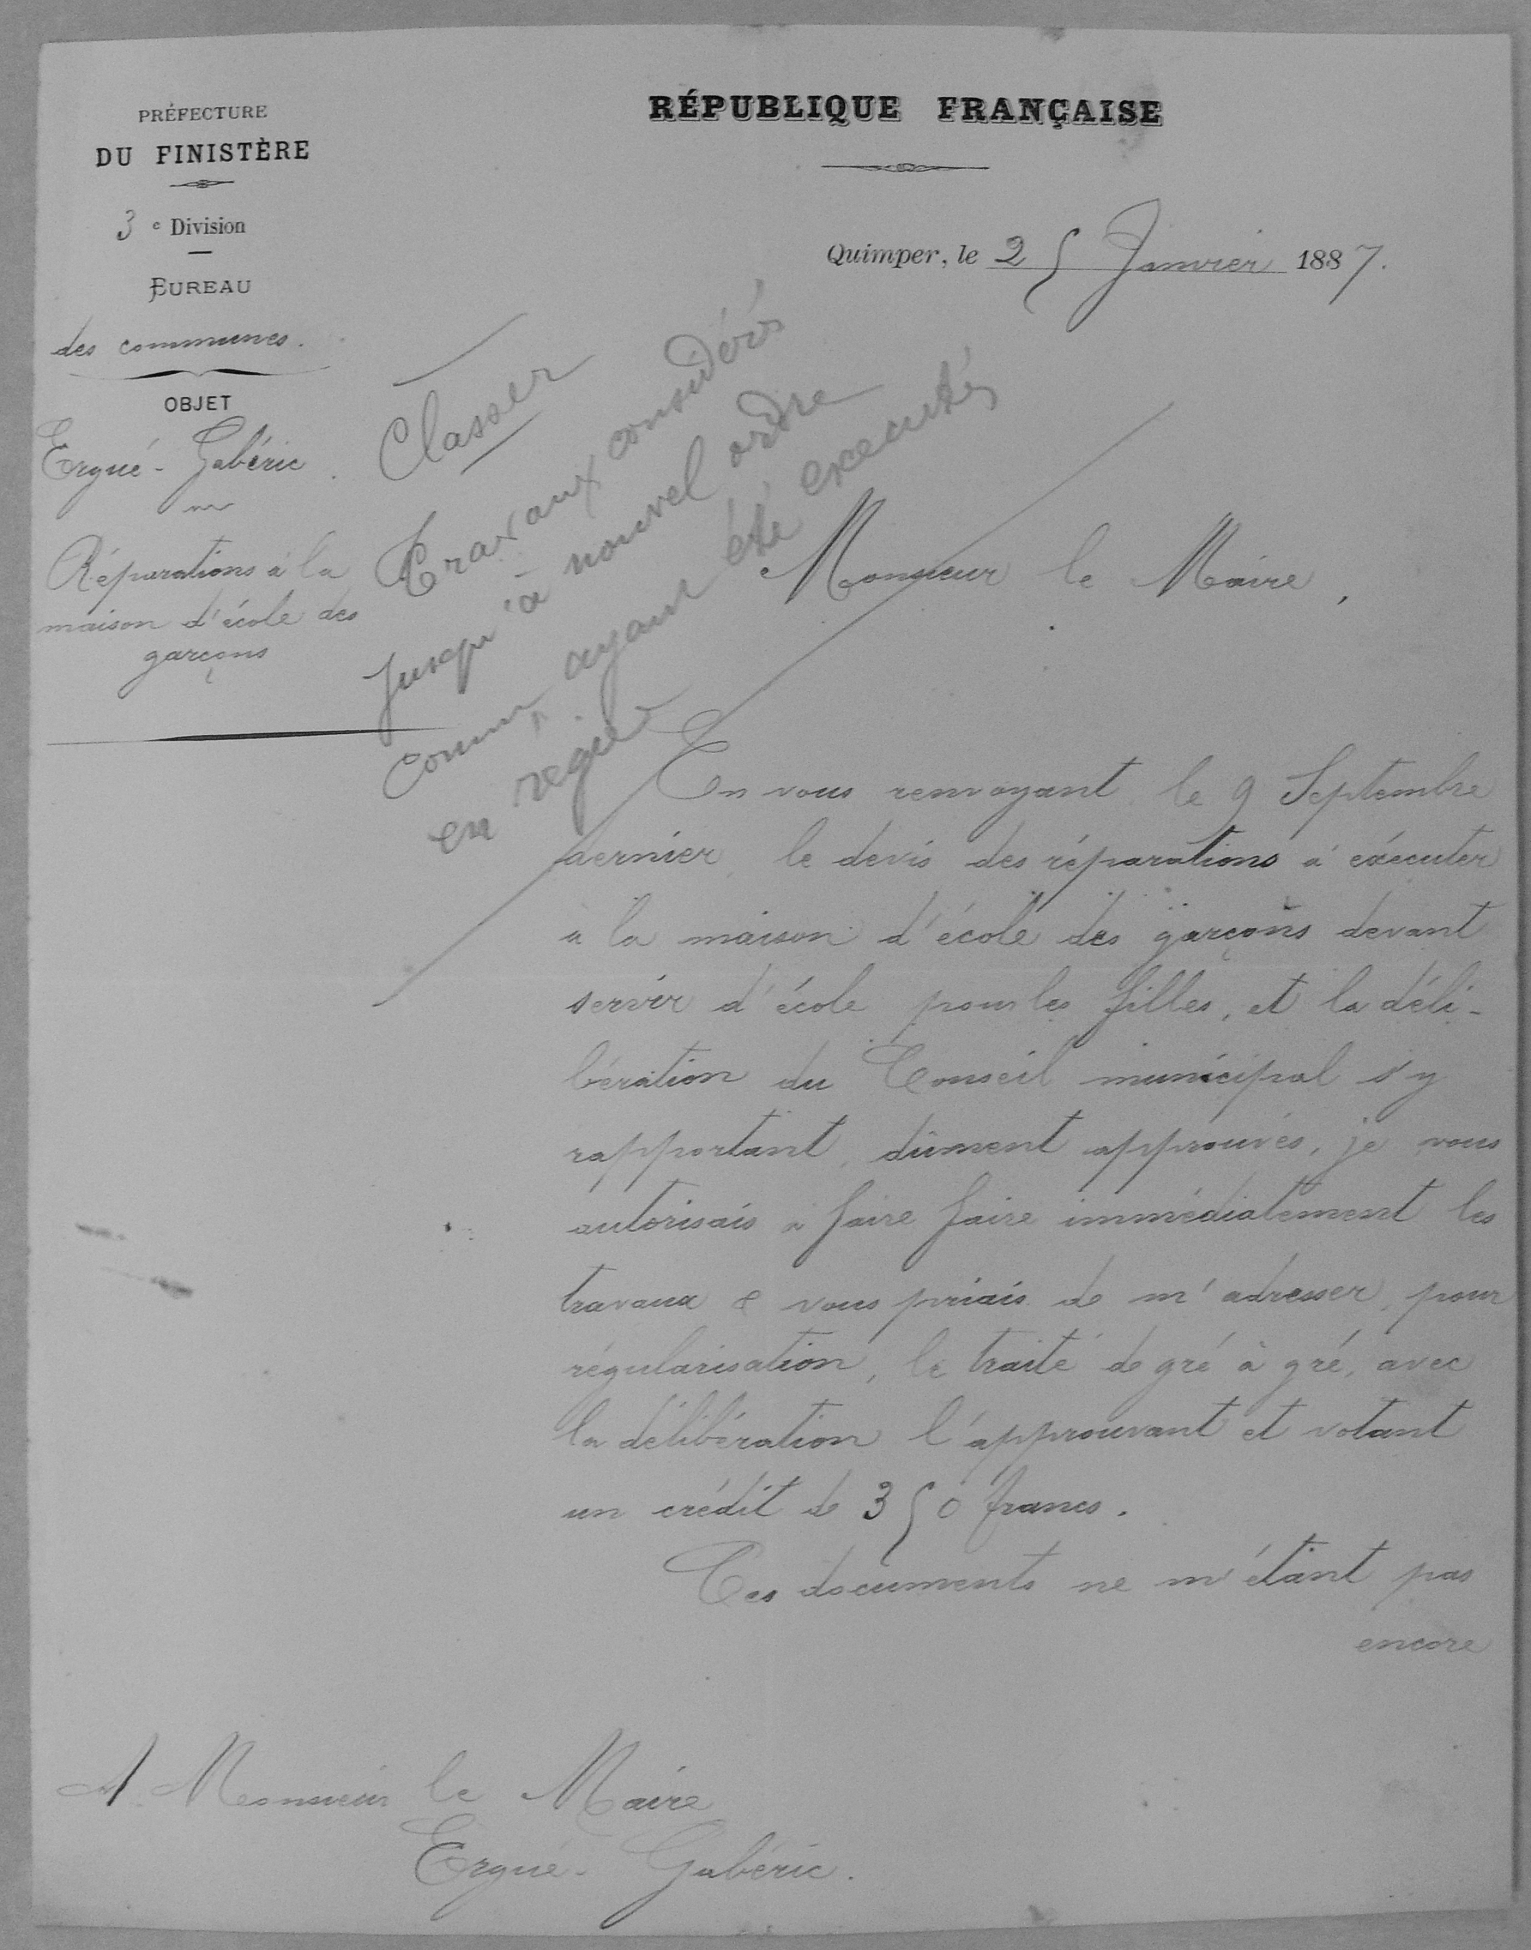 PRÉFECTURE
DU FINISTÈRE
3e Division
BUREAU
des communes.
OBJET
Ergué-Gabéric.
Réparations à la
maison d'école des
garçons
RÉPUBLIQUE FRANÇAISE
Quimper, le 25 Janvier 1887.
Classer
Travaux considérés
jusqu'à nouvel ordre
comme ayant été executés
en régie
Monsieur le Maire,
En vous renvoyant le 9 Septembre
dernier, le devis des réparations à exécuter
à la maison d'école des garçons devant
servir d'école pour les filles, et la déli-
bération du Conseil municipal s'y
rapportant, dûment approuvés, je vous
autorisais à faire faire immédiatement les
travaux & vous priais de m'adresser, pour
régularisation, le traité de gré à gré, avec
la délibération l'approuvant et votant
un crédit de 350 francs.
Ces documents ne m'étant pas
encore
A Monsieur le Maire
Ergué-Gabéric.